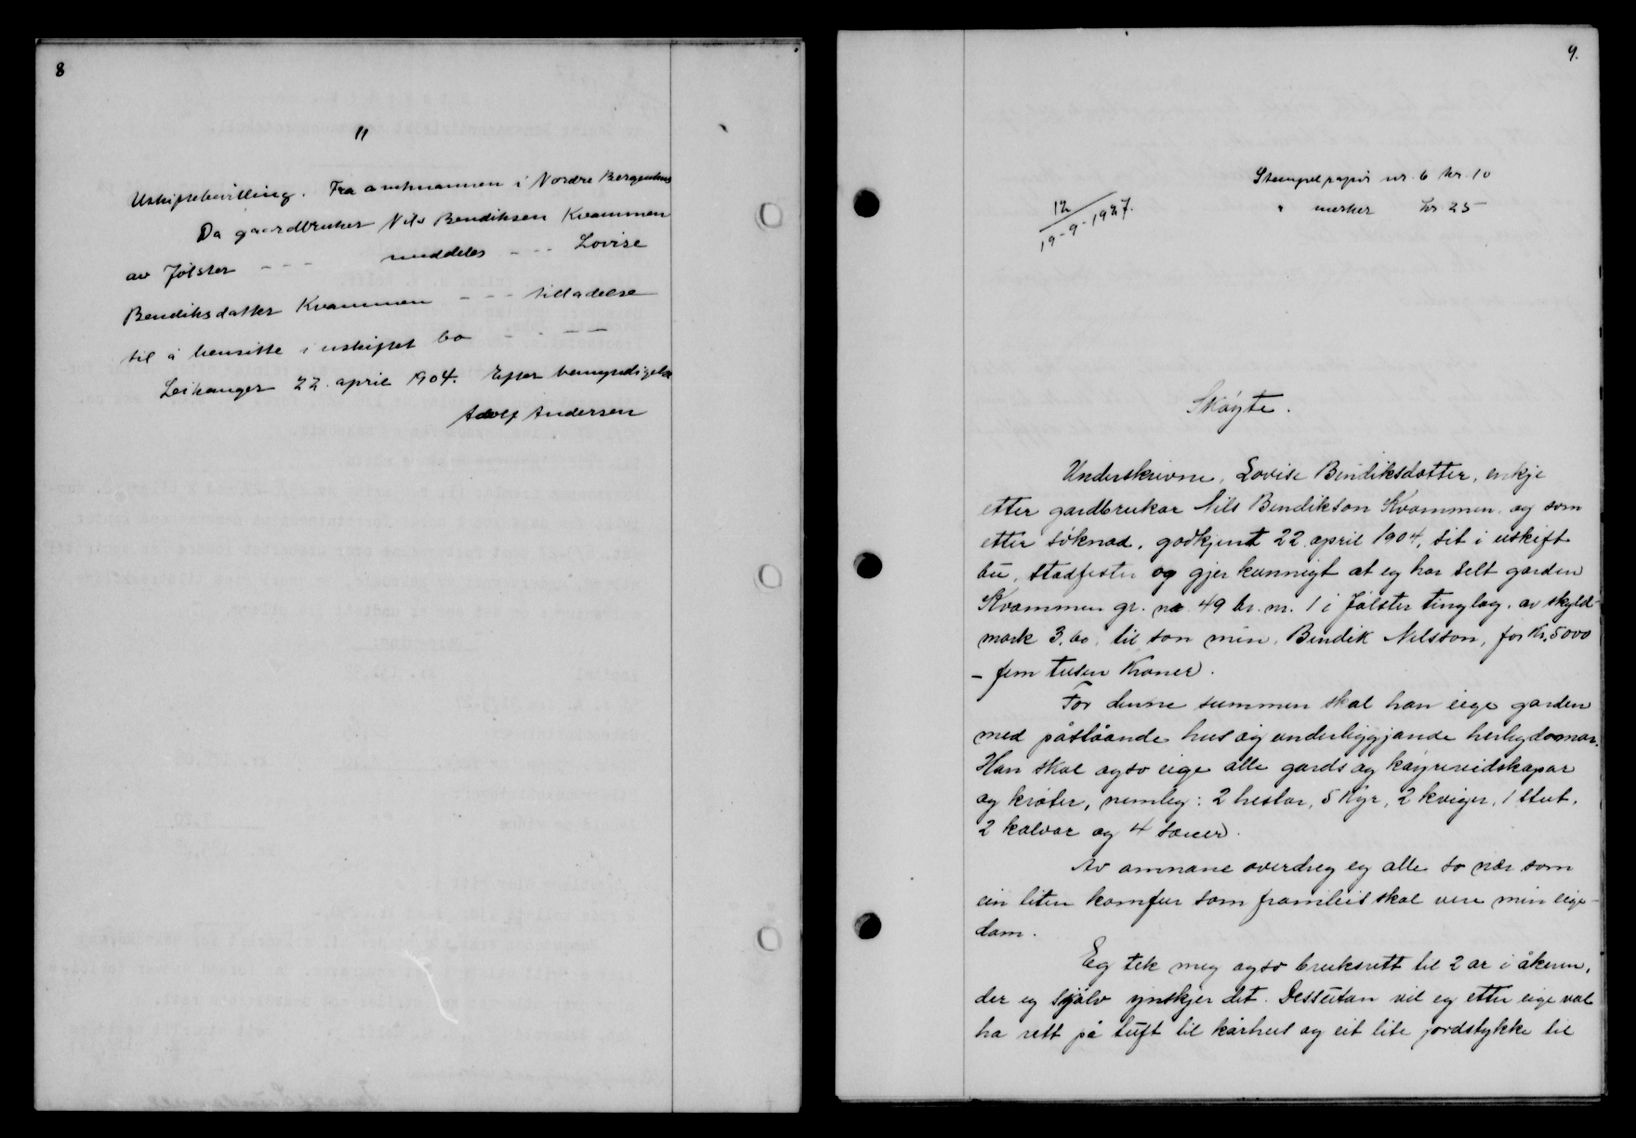 8
11
Uskiftebevilling. Fra amtmannen i Nordre Bergenhus
Da gaardbruker Nils Bendiksen Kvammen
av Jølster - - - meddeles - - - Lovise
Bendiksdatter Kvammen - - - tilladelse
til å hensitte i uskiftet bo - - - -
Leikanger 22. april 1904. Efter bemyndigelse
Adolf Andersen
9.
Stempelpapir nr. 6 kr. 10
" merker kr 25
12/19-9-1927.
Skøyte.
Underskrivne, Lovise Bendiksdotter, enkje
etter gardbrukar Nils Bendikson Kvammen, og som
etter søknad, godkjent 22. april 1904, sit i uskift
bu, stadfester og gjer kunnigt at eg har selt garden
Kvammen gr. nr. 49 br. nr. 1 i Jølster tinglag, av skyld-
mark 3.60, til son min, Bendik Nilsson, for kr. 5000
- fem tusen kroner.
For denne summen skal han eige garden
med påståande hus og underliggjande herlegdomar.
Han skal ogso eige alle gards og køyrereidskapar
og krøter, nemleg: 2 hestar, 5 kyr, 2 kviger, 1 stut,
2 kalvar og 4 sauer.
Av omnane overdreg eg alle so nær som
ein liten komfur som framleis skal vere min eige-
dom.
Eg tek meg ogso bruksrett til 2 ar i åkeren,
der eg sjølv ynskjer det. Dessutan vil eg etter eige val
ha rett på tuft til kårhus og eit lite jordstykke til